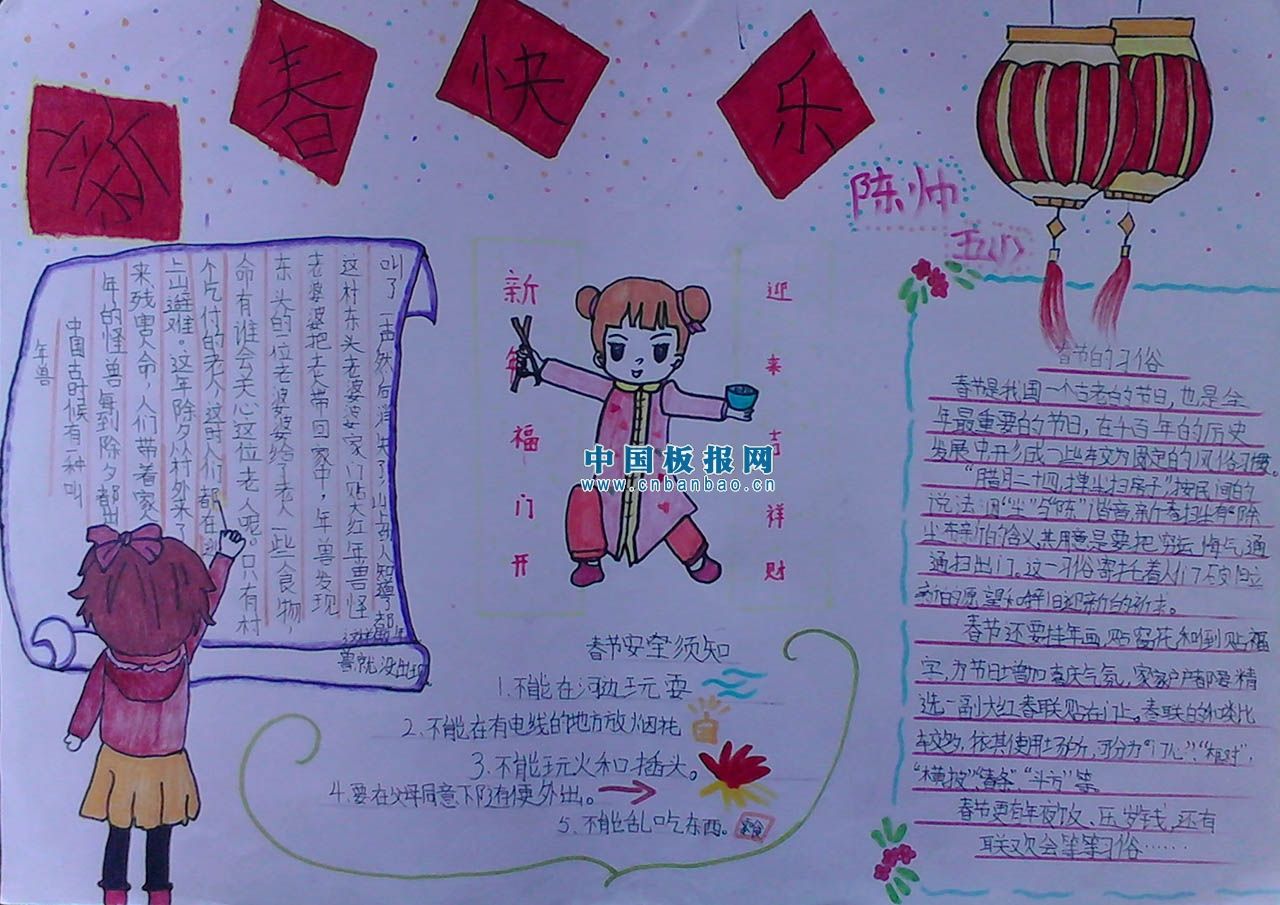 新
春
快
乐
陈帅
五(1)
年兽
中国古时候有一种叫
年的怪兽每到除夕都出
来残害人命，人们带着家人
上山避难。这年除夕从村外来了
个乞付的老人，这时人们都在
命有谁会关心这位老人呢。只有村
东头的一位老婆婆给了老人一些食物，
老婆婆把老人带回家中，年兽发现
这村东头老婆婆家门贴大红年兽怪
叫了一声然后消失了
兽就没出现
新年福门开
迎来吉祥财
中国板报网
www.cnbanbao.cn
春节安全须知
1.不能在河边玩耍
2.不能在有电线的地方放烟花
3.不能玩火和插头。
4.要在父母同意下才有便外出。
5.不能乱吃东西。
春节的习俗
春节是我国一个古老的节日，也是全
年最重要的节日，在千百年的历史
发展中形成了些较为固定的风俗习惯。
"腊月二十四，掸尘扫房子"按民间的
说法：因"尘"与"陈"谐音，新春扫尘有"除
尘布新"的含义其用意是要把穷运、晦气通
通扫出门。这一习俗寄托着人们
新的愿望和辞旧迎新的祈求。
春节还要挂年画，贴窗花和倒贴福
字，为节日增加喜庆气氛，家家户户都要精
选一副大红春联贴在门上。春联的种类比
较多，依其使用场所，可分为
"横披"、"春条"、"斗方"等。
春节更有年夜饭、压岁钱，还有
联欢会等等习俗……